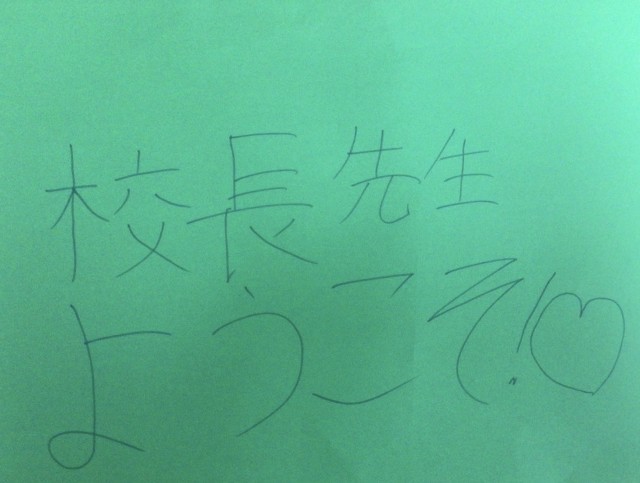 校長先生
ようこそ!♡